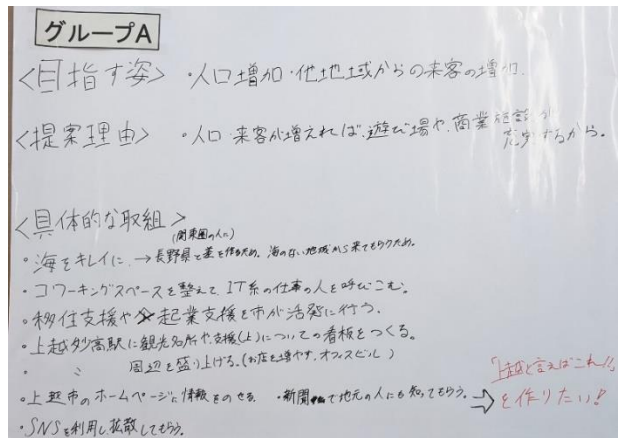 グループA
<目指す姿> ・人口増加・他地域からの来客の増加.
<提案理由> ・人口・来客が増えれば、遊び場や、商業施設が
充実するから。
<具体的な取組>
(関東圏の人に)
・海をキレイに. → 長野県と差を作るため。海のない地域から来てもらうため。
・コワーキングスペースを整えて、IT系の仕事の人を呼びこむ。
・移住支援や起業支援を市が活発に行う.
・上越妙高駅に観光名所や支援(上)についての看板をつくる。
・ 〃 周辺を盛り上げる。(お店を増やす、オフィスビル)
・上越市のホームページに情報をのせる. ・新聞で地元の人にも知ってもらう。
・SNSを利用し拡散してもらう。
⇒ 「上越と言えばこれ!!」
を作りたい!